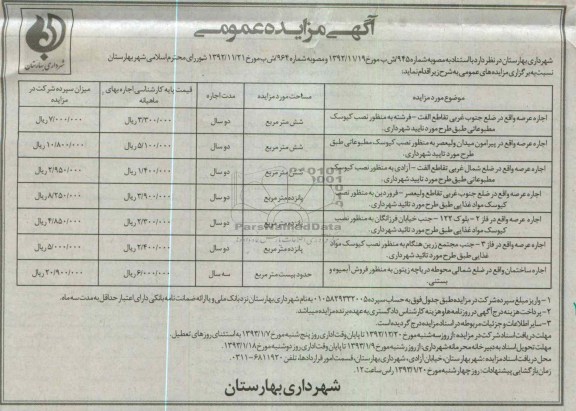 آگهی مزایده عمومی
شهرداری بهارستان
شهرداری بهارستان در نظر دارد با استناد به مصوبه شماره ۹۴۵/ش ب مورخ ۱۳۹۲/۱۱/۱۹ و مصوبه شماره ۹۶۴/ش ب مورخ ۱۳۹۲/۱۱/۲۱ شورای محترم اسلامی شهر بهارستان
نسبت به برگزاری مزایده های عمومی به شرح زیر اقدام نماید:
موضوع مورد مزایده مساحت مورد مزایده مدت اجاره قیمت پایه کارشناسی اجاره بهای ماهیانه میزان سپرده شرکت در مزایده
اجاره عرصه واقع در ضلع جنوب غربی تقاطع الفت - فرشته به منظور نصب کیوسک مطبوعاتی طبق طرح مورد تایید شهرداری. شش متر مربع دو سال ۳/۳۰۰/۰۰۰ ریال ۷/۰۰۰/۰۰۰ ریال
اجاره عرصه واقع در پیرامون میدان ولیعصر به منظور نصب کیوسک مطبوعاتی طبق طرح مورد تایید شهرداری. شش متر مربع دو سال ۵/۱۰۰/۰۰۰ ریال ۱۰/۸۰۰/۰۰۰ ریال
اجاره عرصه واقع در ضلع شمال غربی تقاطع الفت - آزادی به منظور نصب کیوسک مطبوعاتی طبق طرح مورد تایید شهرداری. شش متر مربع دو سال ۱/۴۰۰/۰۰۰ ریال ۲/۹۵۰/۰۰۰ ریال
اجاره عرصه واقع در ضلع جنوب غربی تقاطع ولیعصر - فروردین به منظور نصب کیوسک مواد غذایی طبق طرح مورد تائید شهرداری. پانزده متر مربع دو سال ۳/۹۰۰/۰۰۰ ریال ۸/۲۵۰/۰۰۰ ریال
اجاره عرصه واقع در فاز ۲ - بلوک ۱۲۲ - جنب خیابان فرزانگان به منظور نصب کیوسک مواد غذایی طبق طرح مورد تائید شهرداری. پانزده متر مربع دو سال ۲/۳۰۰/۰۰۰ ریال ۴/۸۵۰/۰۰۰ ریال
اجاره عرصه واقع در فاز ۳ - جنب مجتمع زرین هنگام به منظور نصب کیوسک مواد غذایی طبق طرح مورد تائید شهرداری. پانزده متر مربع دو سال ۲/۴۰۰/۰۰۰ ریال ۵/۰۰۰/۰۰۰ ریال
اجاره ساختمان واقع در ضلع شمالی محوطه دریاچه زیتون به منظور فروش آبمیوه و بستنی. حدود بیست متر مربع سه سال ۶/۰۰۰/۰۰۰ ریال ۲۰/۹۰۰/۰۰۰ ریال
۱- واریز مبلغ سپرده شرکت در مزایده طبق جدول فوق به حساب سپرده ۰۱۰۵۸۲۹۳۳۲۰۰۵ به نام شهرداری بهارستان نزد بانک ملی و یا ارائه ضمانت نامه بانکی دارای اعتبار حداقل به مدت سه ماه.
۲- پرداخت هزینه درج آگهی در روزنامه ها و هزینه کارشناس دادگستری به عهده برنده مزایده می باشد.
۳- سایر اطلاعات و جزئیات مربوطه در اسناد مزایده درج گردیده است.
مهلت دریافت اسناد شرکت در مزایده: از روز سه شنبه مورخ ۱۳۹۲/۱۲/۲۰ تا پایان وقت اداری روز پنج شنبه مورخ ۱۳۹۳/۱/۷ به استثنای روزهای تعطیل.
مهلت تحویل اسناد به دبیرخانه محرمانه شهرداری: از روز شنبه مورخ ۱۳۹۳/۱/۹ تا پایان وقت اداری روز دوشنبه مورخ ۱۳۹۳/۱/۱۸
محل دریافت اسناد مزایده: شهر بهارستان، خیابان آزادی، شهرداری بهارستان، قسمت امور قراردادها، تلفن: ۶۸۱۱۹۲۰-۰۳۱۱
زمان بازگشایی پیشنهادات: روز چهارشنبه مورخ ۱۳۹۳/۱/۲۰ راس ساعت ۱۲.
شهرداری بهارستان